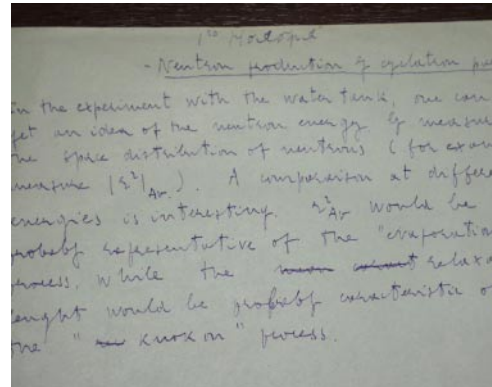 - Neutron production by cyclotron
In the experiment with the water tank, one can
get an idea of the neutron energy by measu
the space distribution of neutrons (for exam
measure (r²)Av.). A comparison at differe
energies is interesting. r²Av would be
probably representative of the "evaporation
process, while the relaxa
lenght would be probably caracteristic o
the "knokon" process.